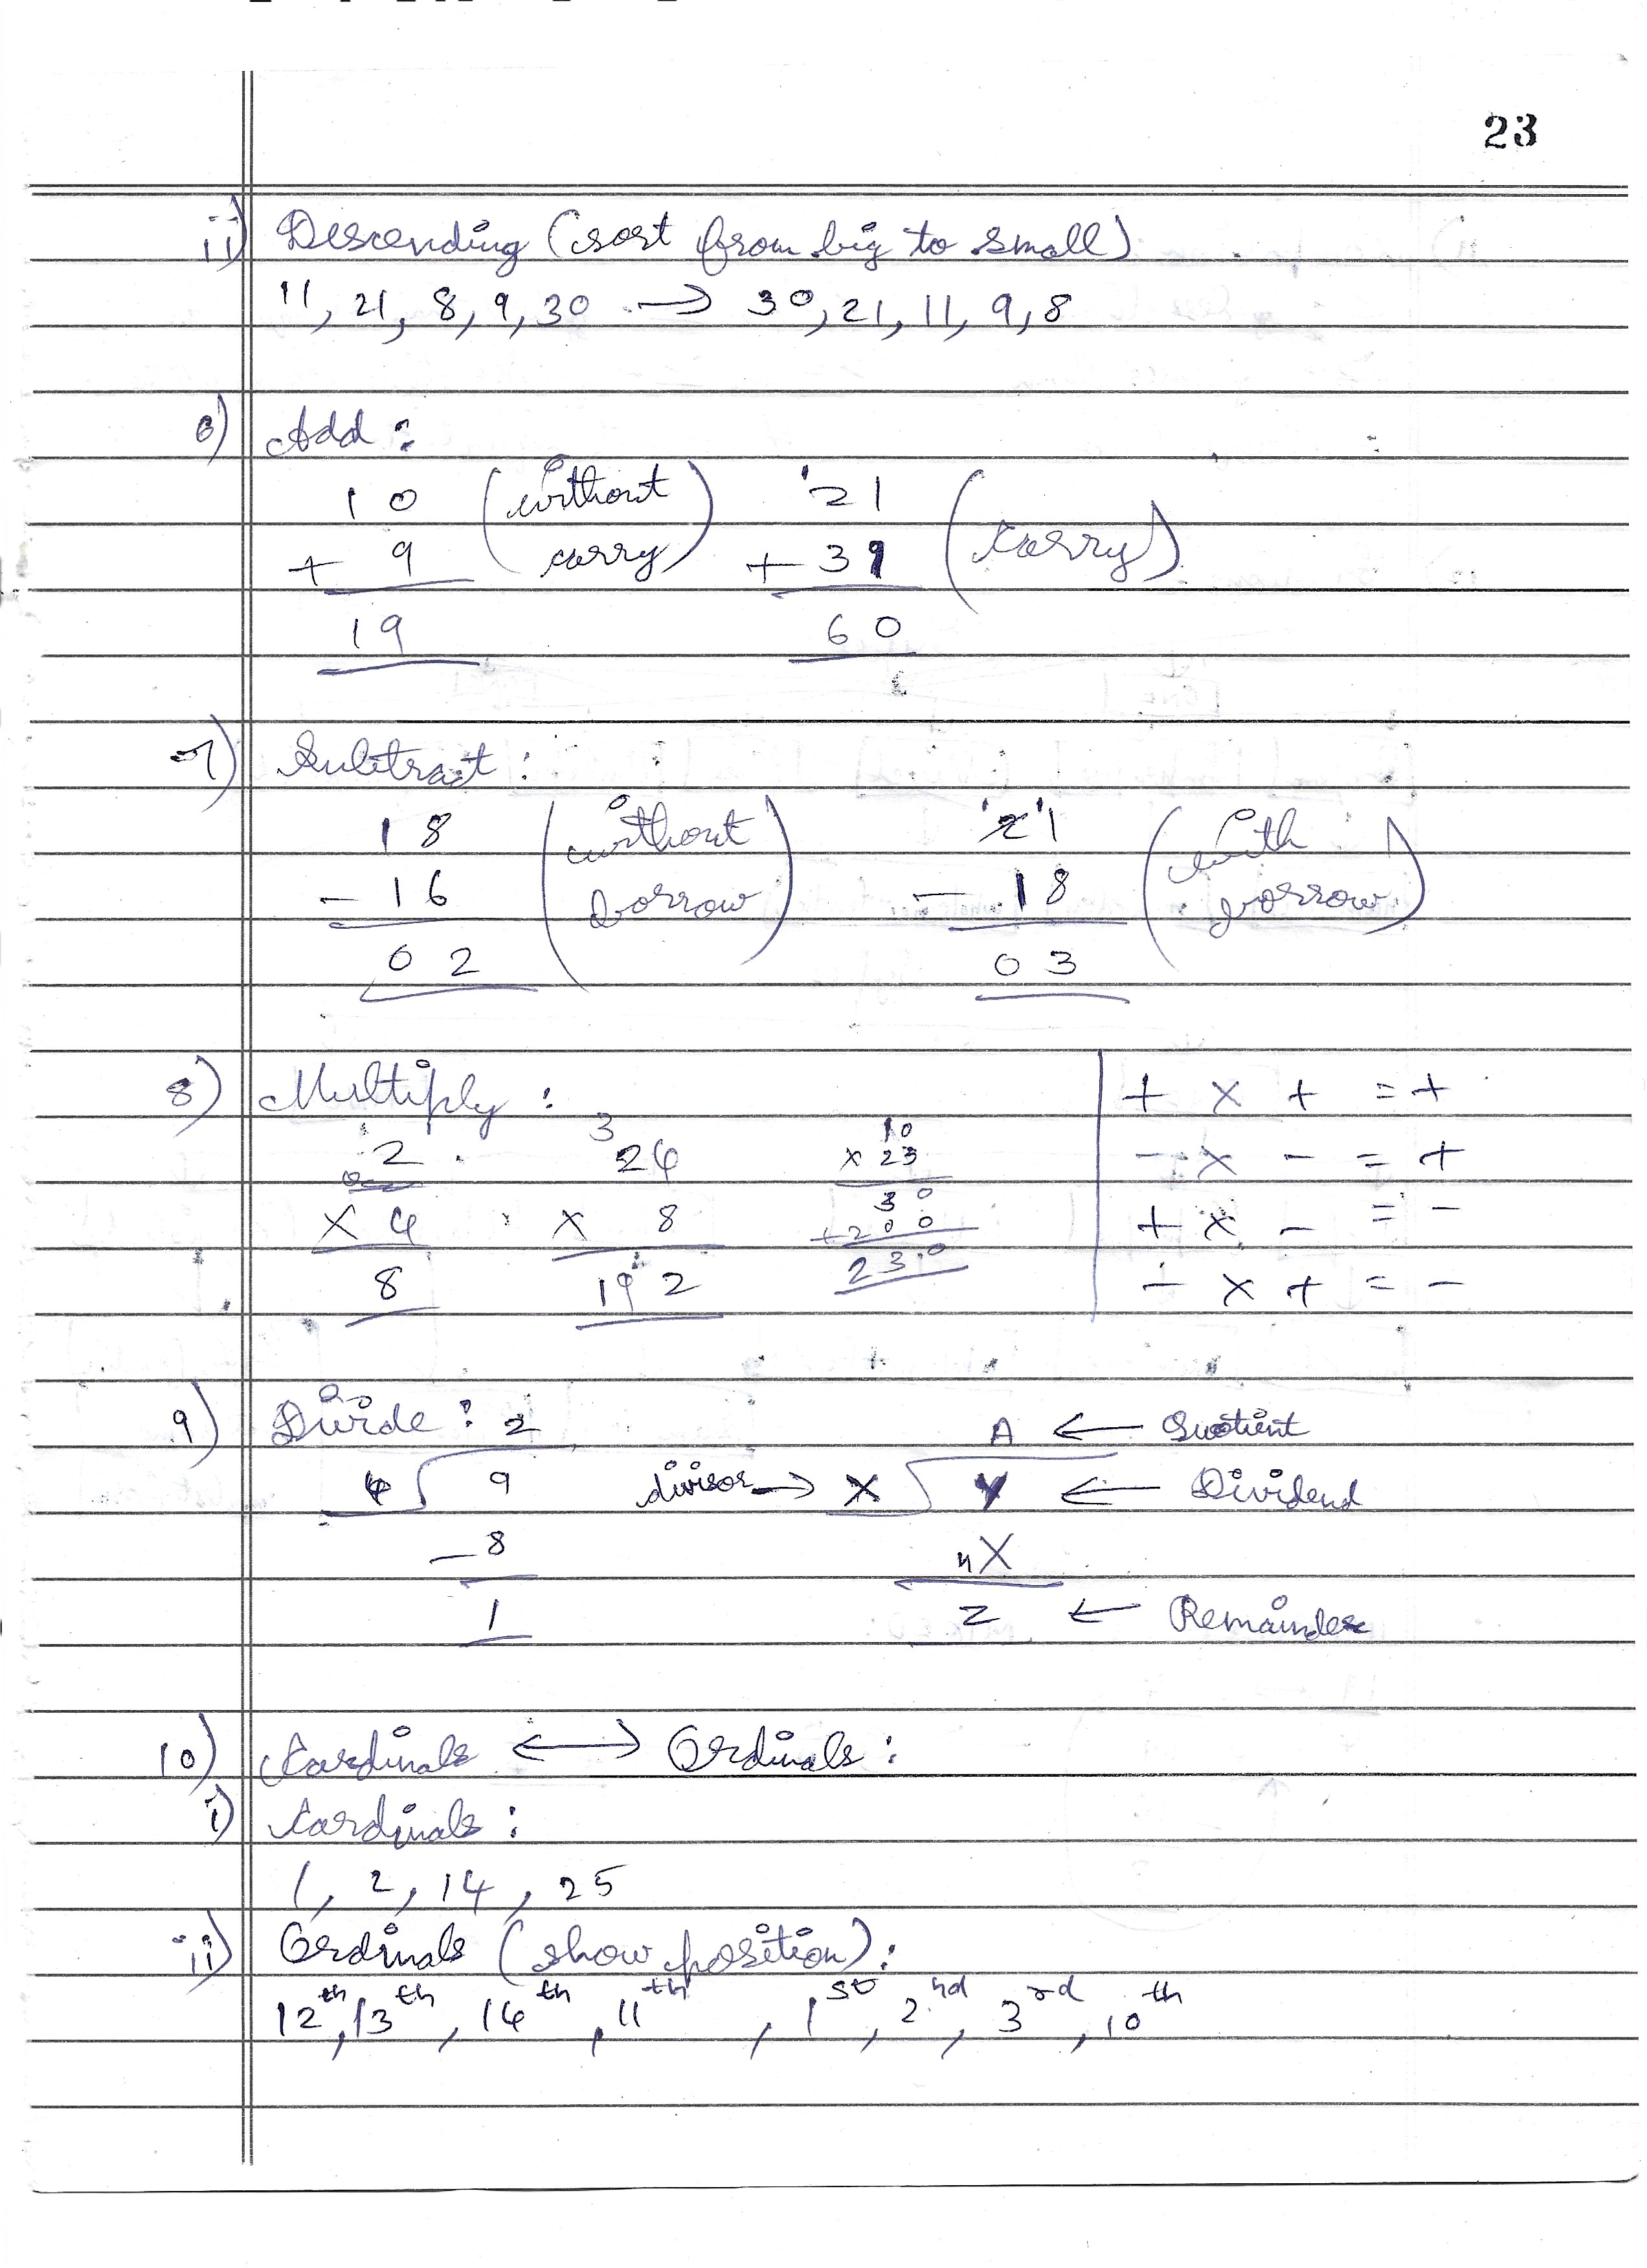 23
ii) Descending (sort from big to small)
11, 21, 8, 9, 30 → 30, 21, 11, 9, 8
6) Add :
10 (without carry) ¹21 (carry)
+ 9 + 39
19 60
7) Subtract :
18 (without borrow) ¹2¹1 (with borrow)
- 16 - 18
02 03
8) Multiply :
2 ³24 10 + × + = +
× 4 × 8 × 23 - × - = +
8 192 30 + × - = -
+200 - × + = -
230
9) Divide : 2 A ← Quotient
4 9 divisor → X Y ← Dividend
- 8 nX
1 Z ← Remainder
10) Cardinals ↔ Ordinals :
i) Cardinals :
1, 2, 14, 25
ii) Ordinals (show position) :
12th, 13th, 14th, 11th, 1st, 2nd, 3rd, 10th